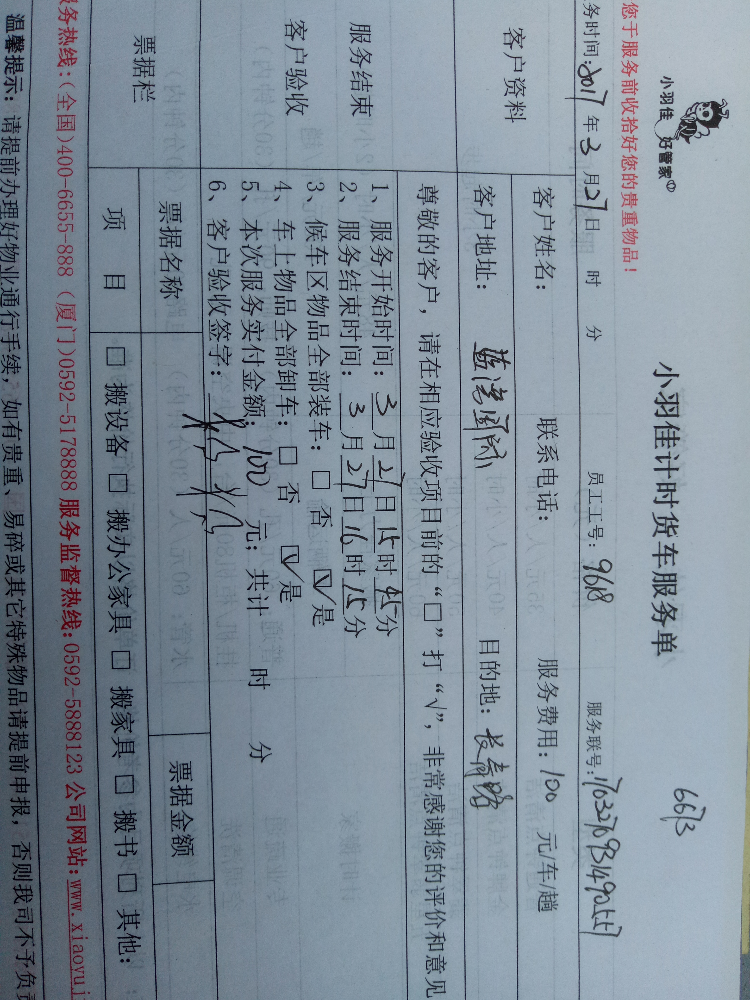 小羽佳 好管家
小羽佳计时货车服务单
6613
您于服务前收拾好您的贵重物品！
务时间:2017 年 3 月 27 日 时 分 员工工号: 9618 服务联号:
客户资料
客户姓名: 联系电话: 服务费用: 100 元/车/趟
客户地址: 目的地: 长青路
尊敬的客户，请在相应验收项目前的“□”打“√”，非常感谢您的评价和意见
服务结束
客户验收
1、服务开始时间: 3 月 27 日 15 时 45 分
2、服务结束时间: 3 月 27 日 16 时 15 分
3、候车区物品全部装车: □ 否 ☑ 是
4、车上物品全部卸车: □ 否 ☑ 是
5、本次服务实付金额: 100 元; 共计 时 分
6、客户验收签字:
票据栏
票据名称 票据金额
项 目 □ 搬设备 □ 搬办公家具 □ 搬家具 □ 搬书 □ 其他:
服务热线:(全国)400-6655-888 (厦门)0592-5178888 服务监督热线:0592-5888123 公司网站:www.xiaoyuj
温馨提示: 请提前办理好物业通行手续，如有贵重、易碎或其它特殊物品请提前申报，否则我司不予负责